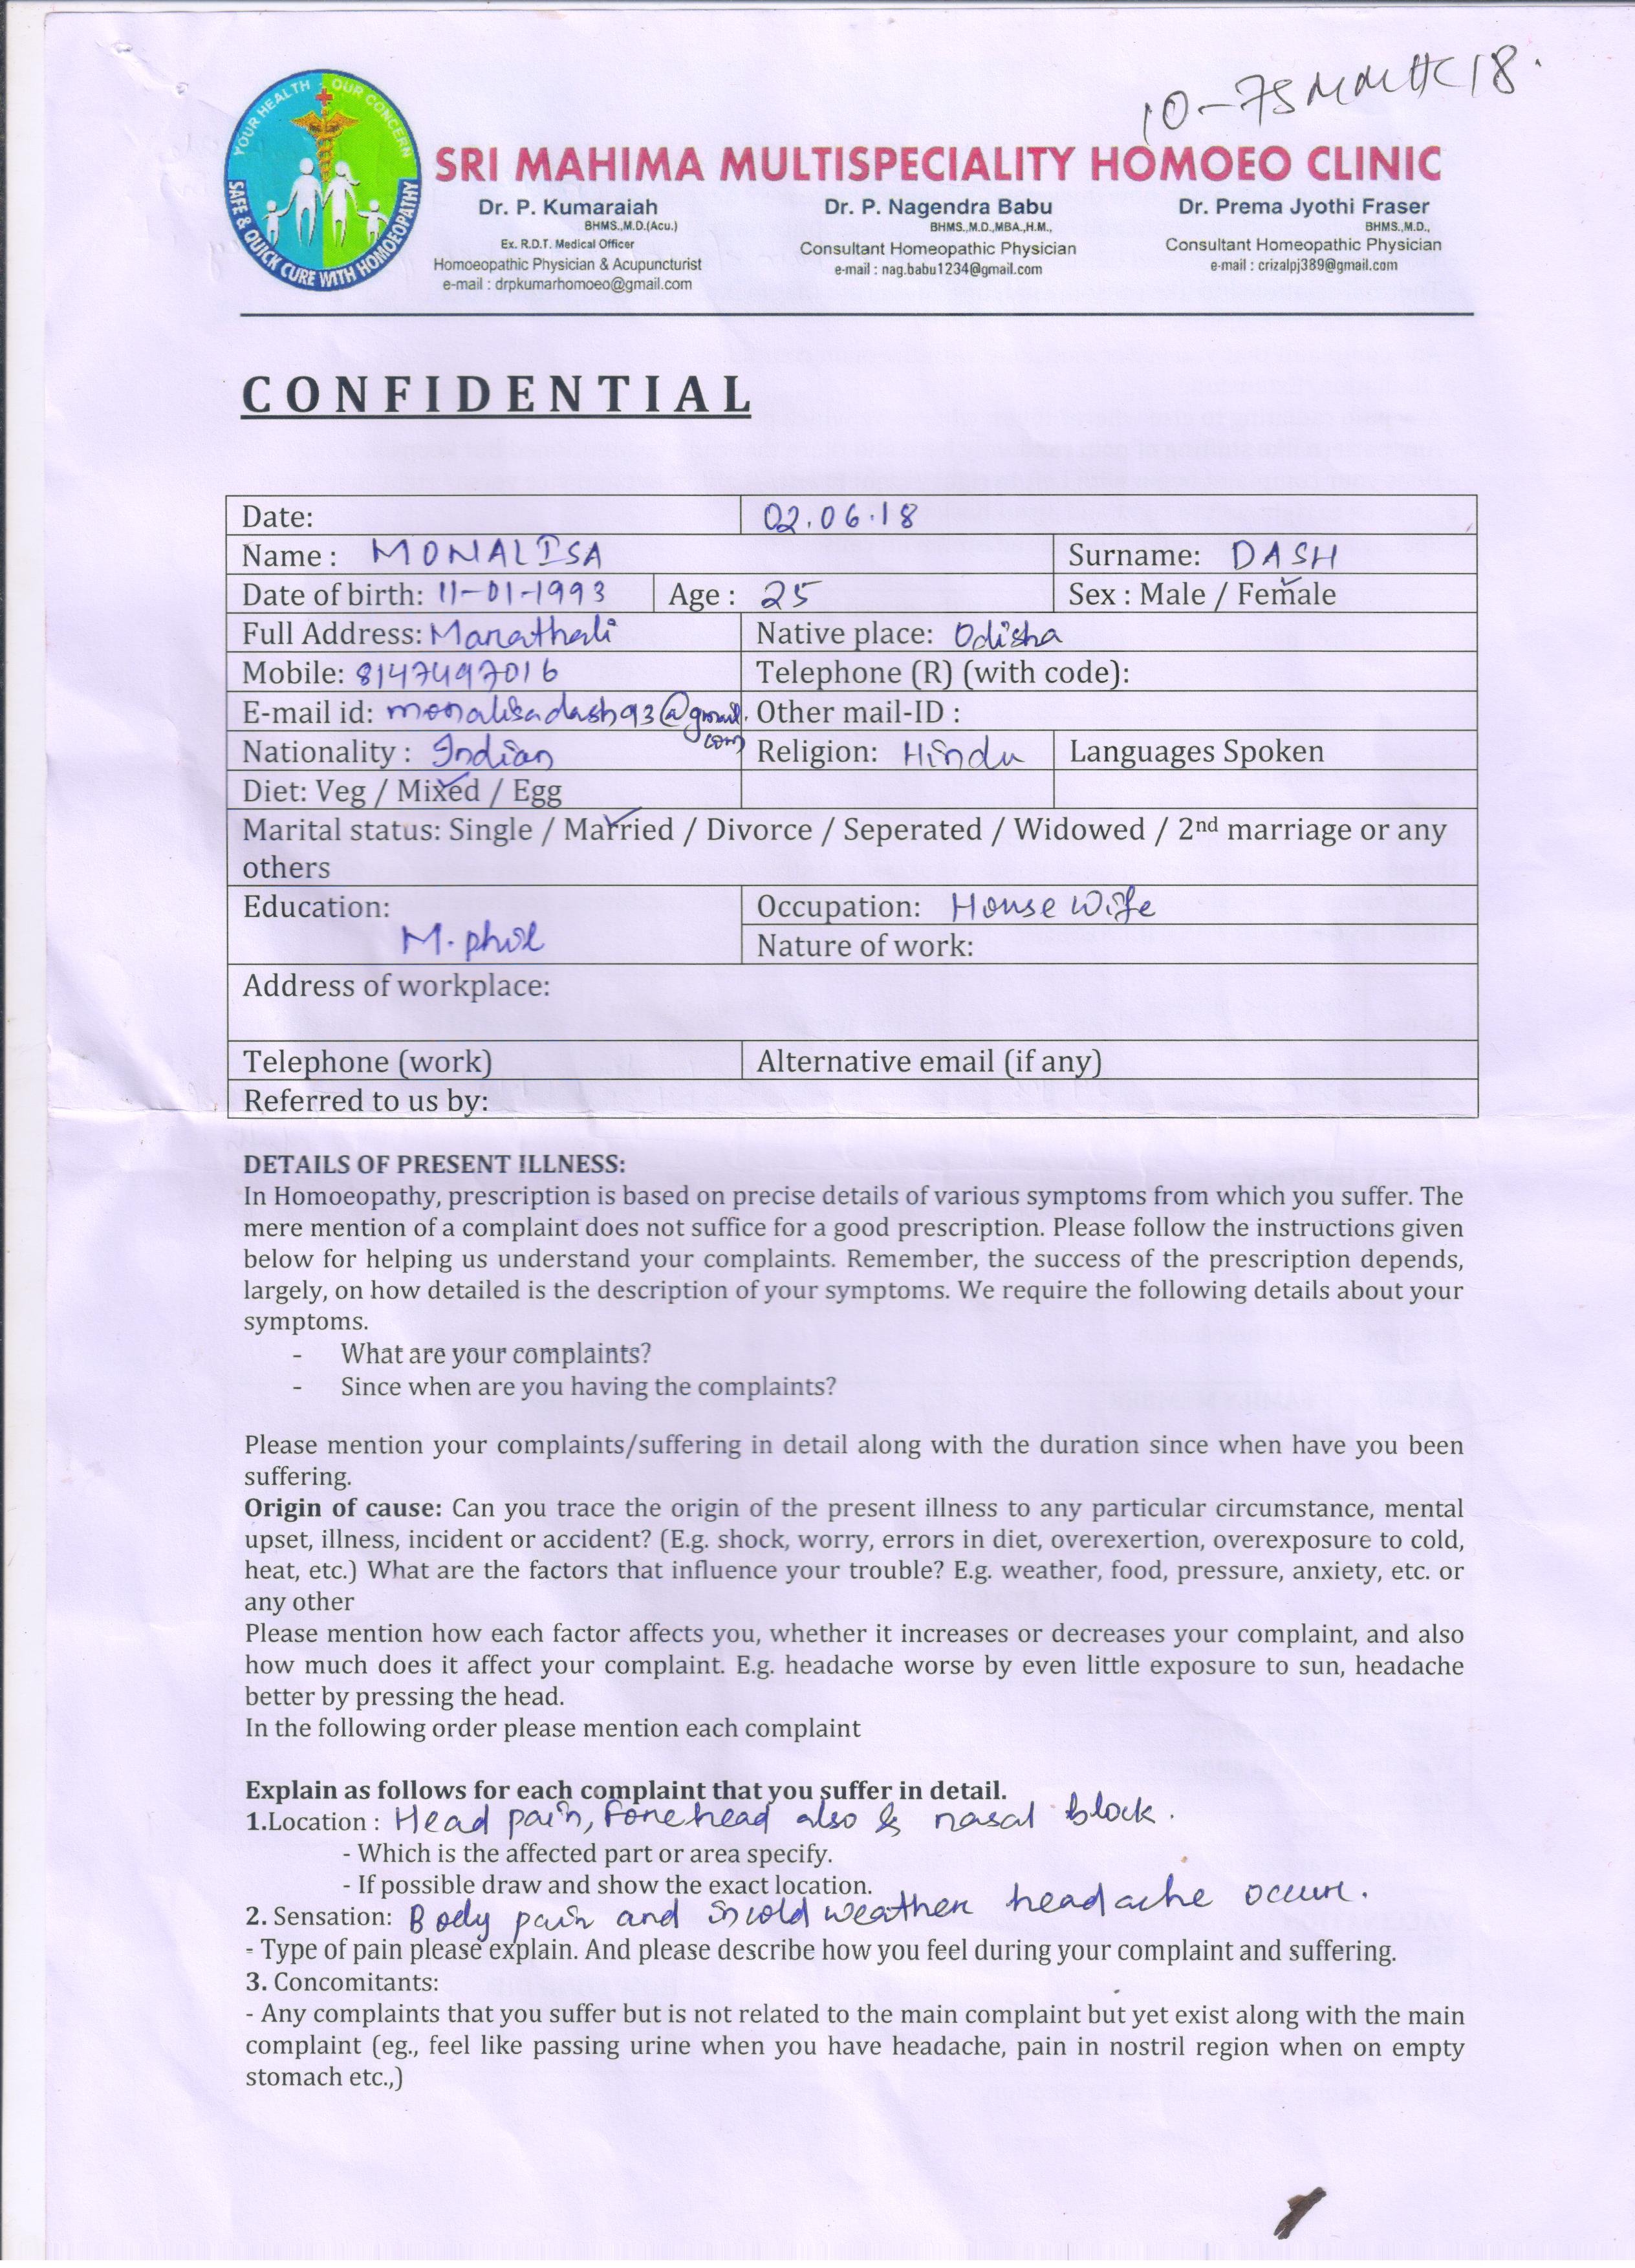 10-75MMHC18.
YOUR HEALTH - OUR CONCERN
SAFE & QUICK CURE WITH HOMOEOPATHY
SRI MAHIMA MULTISPECIALITY HOMOEO CLINIC
Dr. P. Kumaraiah Dr. P. Nagendra Babu Dr. Prema Jyothi Fraser
BHMS.,M.D.(Acu.) BHMS.,M.D.,MBA.,H.M., BHMS.,M.D.,
Ex. R.D.T. Medical Officer Consultant Homeopathic Physician Consultant Homeopathic Physician
Homoeopathic Physician & Acupuncturist e-mail : nag.babu1234@gmail.com e-mail : crizalpj389@gmail.com
e-mail : drpkumarhomoeo@gmail.com
CONFIDENTIAL
Date: 02.06.18
Name : MONALISA Surname: DASH
Date of birth: 11-01-1993 Age : 25 Sex : Male / Female
Full Address: Marathali Native place: Odisha
Mobile: 8147497016 Telephone (R) (with code):
E-mail id: monalisadash93@gmail.com Other mail-ID :
Nationality : Indian Religion: Hindu Languages Spoken
Diet: Veg / Mixed / Egg
Marital status: Single / Married / Divorce / Seperated / Widowed / 2nd marriage or any
others
Education: Occupation: House Wife
M.phil Nature of work:
Address of workplace:
Telephone (work) Alternative email (if any)
Referred to us by:
DETAILS OF PRESENT ILLNESS:
In Homoeopathy, prescription is based on precise details of various symptoms from which you suffer. The
mere mention of a complaint does not suffice for a good prescription. Please follow the instructions given
below for helping us understand your complaints. Remember, the success of the prescription depends,
largely, on how detailed is the description of your symptoms. We require the following details about your
symptoms.
- What are your complaints?
- Since when are you having the complaints?
Please mention your complaints/suffering in detail along with the duration since when have you been
suffering.
Origin of cause: Can you trace the origin of the present illness to any particular circumstance, mental
upset, illness, incident or accident? (E.g. shock, worry, errors in diet, overexertion, overexposure to cold,
heat, etc.) What are the factors that influence your trouble? E.g. weather, food, pressure, anxiety, etc. or
any other
Please mention how each factor affects you, whether it increases or decreases your complaint, and also
how much does it affect your complaint. E.g. headache worse by even little exposure to sun, headache
better by pressing the head.
In the following order please mention each complaint
Explain as follows for each complaint that you suffer in detail.
1.Location : Head pain, Forehead also & nasal block.
- Which is the affected part or area specify.
- If possible draw and show the exact location.
2. Sensation: Body pain and in cold weather headache occur.
- Type of pain please explain. And please describe how you feel during your complaint and suffering.
3. Concomitants:
- Any complaints that you suffer but is not related to the main complaint but yet exist along with the main
complaint (eg., feel like passing urine when you have headache, pain in nostril region when on empty
stomach etc.,)